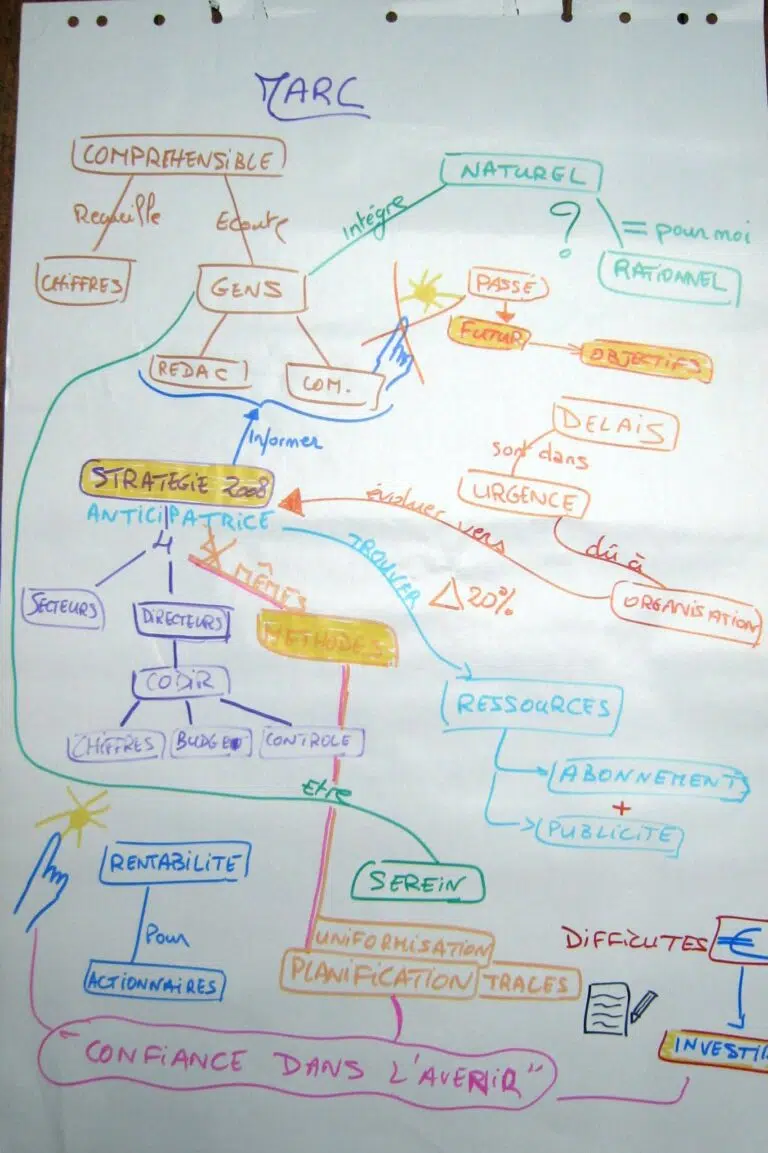 MARC
COMPREHENSIBLE
NATUREL
Recueille
Ecoute
Intégre
?
= pour moi
CHIFFRES
GENS
RATIONNEL
PASSÉ
FUTUR
OBJECTIFS
REDAC
COM.
DELAIS
Informer
sont dans
STRATEGIE 2008
URGENCE
évoluer vers
ANTICIPATRICE
dû à
4
TROUVER
MÊMES
△ 20%
SECTEURS
DIRECTEURS
METHODES
ORGANISATION
CODIR
RESSOURCES
CHIFFRES
BUDGET
CONTROLE
ABONNEMENT
+
Etre
PUBLICITE
RENTABILITE
SEREIN
Pour
UNIFORMISATION
DIFFICUTES
€
ACTIONNAIRES
PLANIFICATION
TRACES
INVESTIR
"CONFIANCE DANS L'AVENIR"